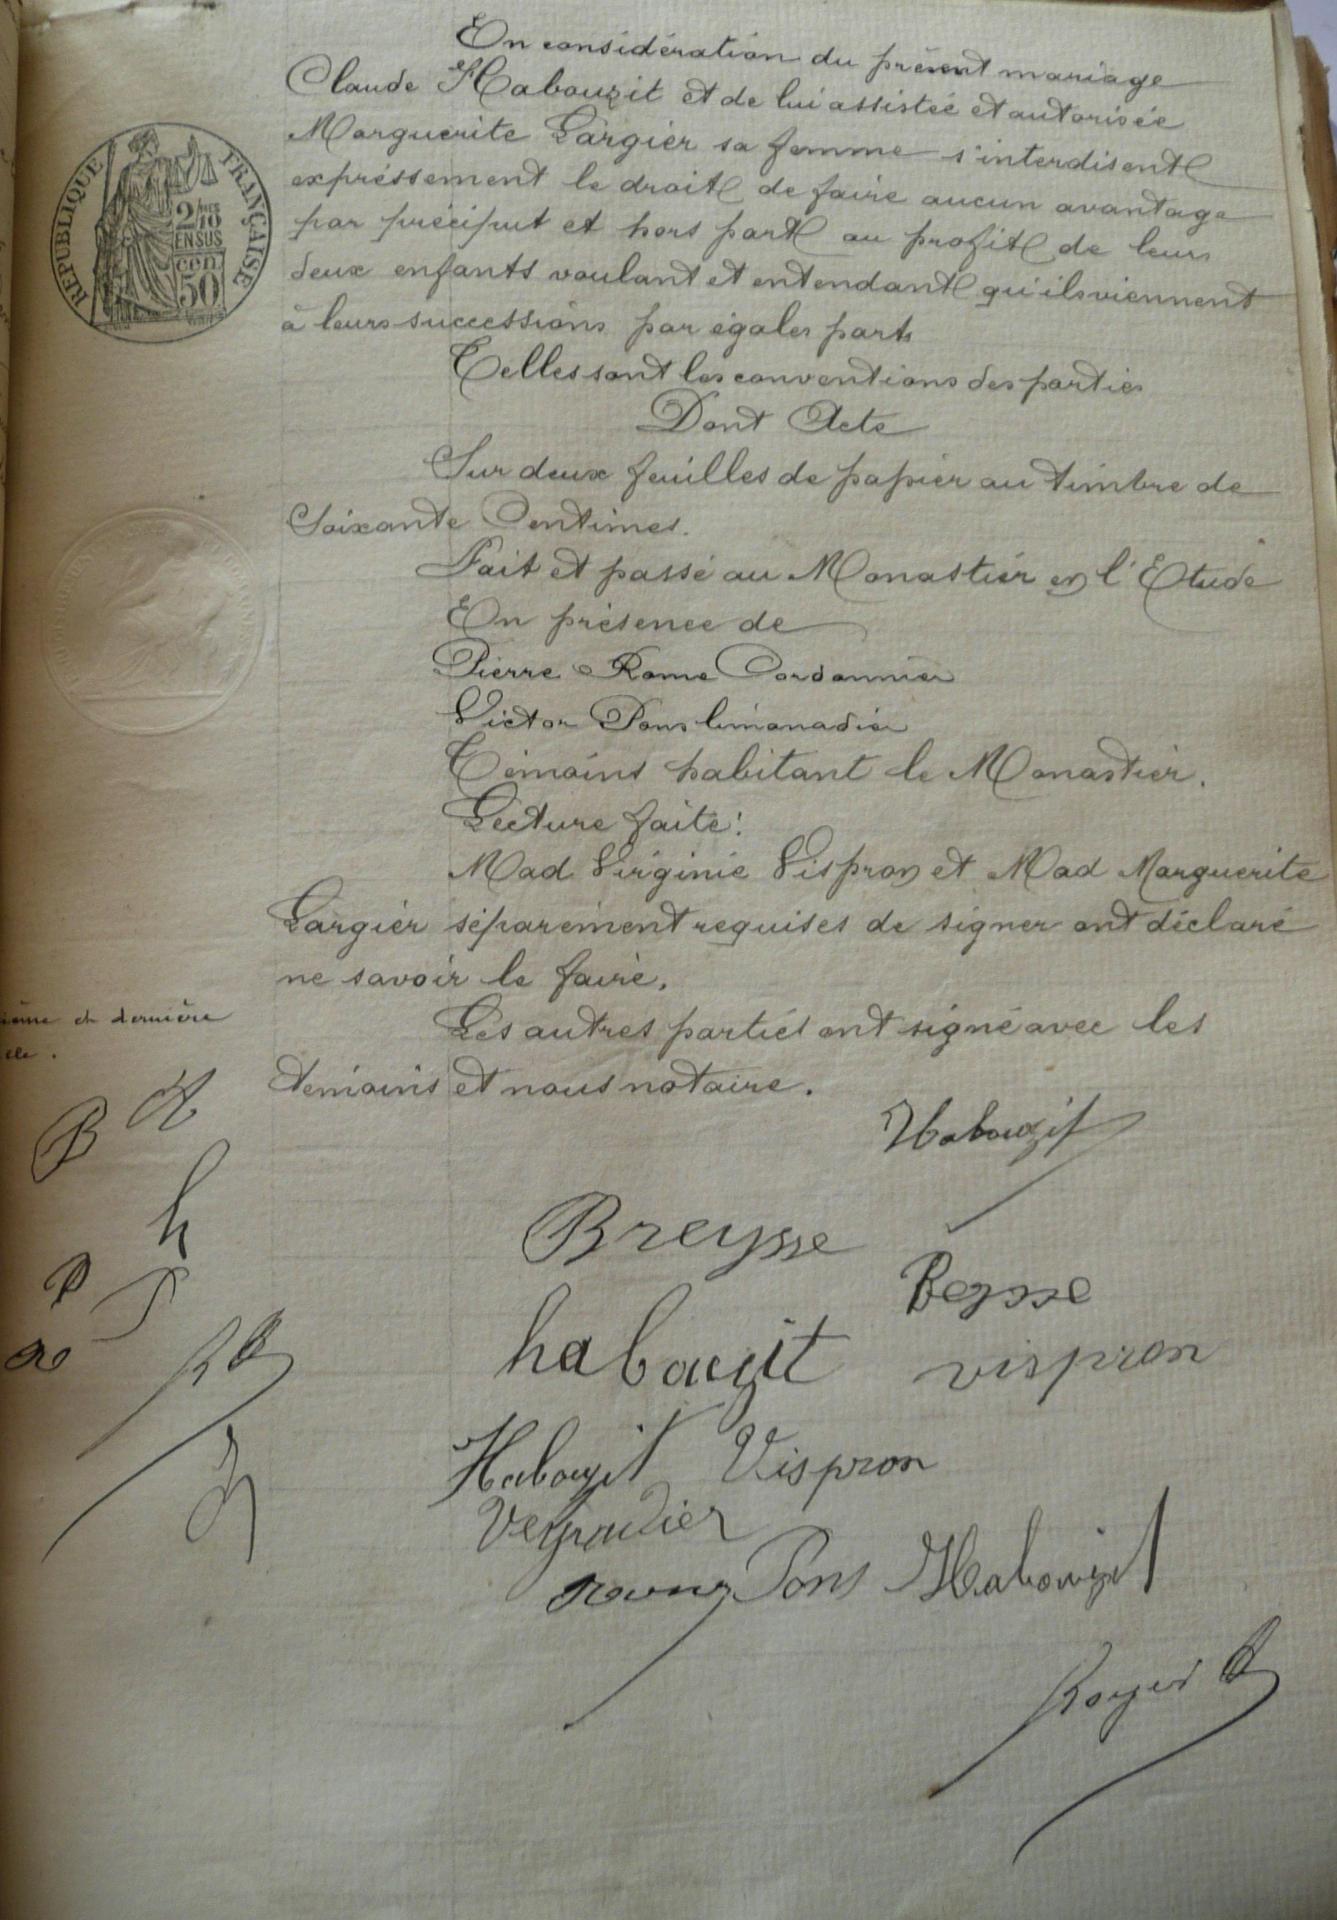 En considération du présent mariage
Claude Habouzit et de lui assistée et autorisée
Marguerite Largier sa femme s'interdisent
expréssement le droit de faire aucun avantage
par préciput et hors part au profit de leurs
deux enfants voulant et entendant qu'ils viennent
à leurs successions par égales parts
Telles sont les conventions des parties
Dont Acte
Sur deux feuilles de papier au timbre de
Soixante Centimes.
Fait et passé au Monastier en l'Etude
En présence de
Pierre Rome Cordonnier
Victor Pons limonadier
Témoins habitant le Monastier.
Lecture faite:
Mad Virginie Vispron et Mad Marguerite
Largier séparément requises de signer ont déclaré
ne savoir le faire.
Les autres parties ont signé avec les
temoins et nous notaire.
Habouzit
Breysse
Beysse
habouzit
vispron
Habouzit Vispron
Veyradier
Pons Habouzit
REPUBLIQUE FRANÇAISE
2/10
EN SUS
50
cen
et dernière
B H
h
P